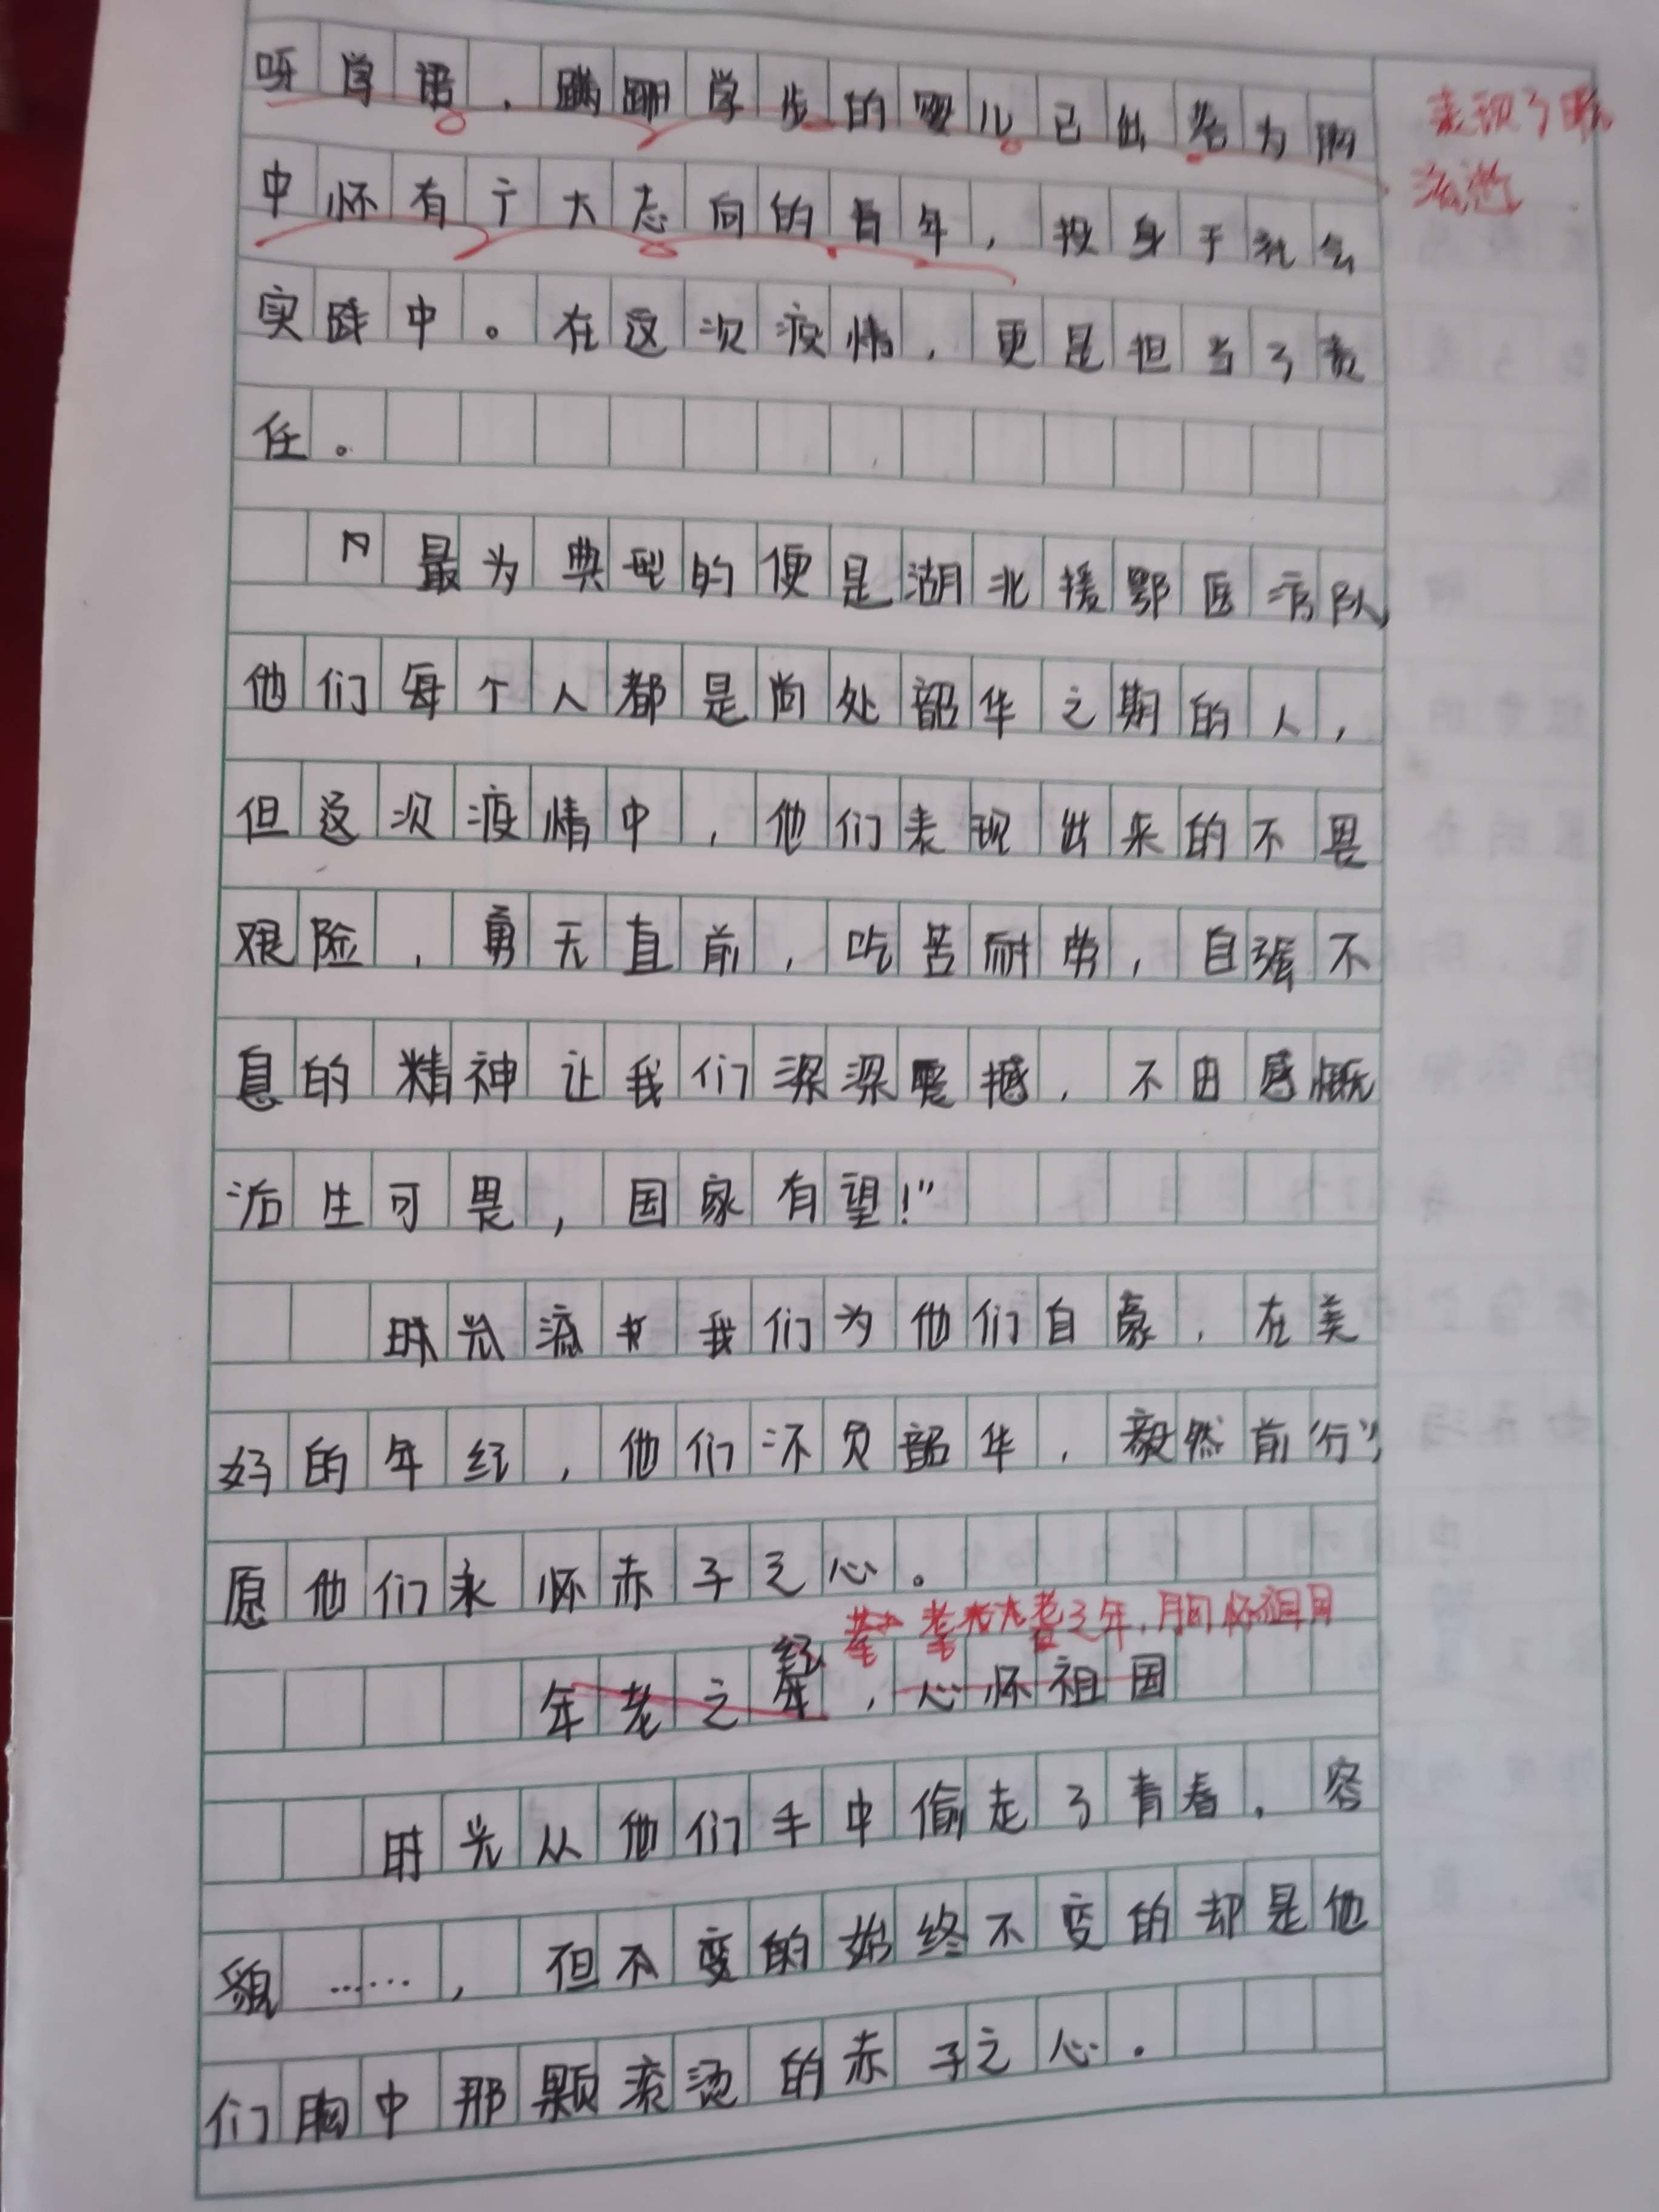 呀学语，蹒跚学步的婴儿已出落为胸
表现了
中怀有于大志向的青年，投身于社会
实践中。在这次疫情，更是担当了责
任。
最为典型的便是湖北援鄂医疗队，
他们每个人都是尚处韶华之期的人，
但这次疫情中，他们表现出来的不畏
艰险，勇无直前，吃苦耐劳，自强不
息的精神让我们深深震撼，不由感慨
后生可畏，国家有望！”
时光流书我们为他们自豪，在美
好的年纪，他们不负韶华，毅然前行，
愿他们永怀赤子之心。
耄耋之年，胸怀祖国
年老之年，心怀祖国
时光从他们手中偷走了青春，容
貌……，但不变的始终不变的却是他
们胸中那颗滚烫的赤子之心。